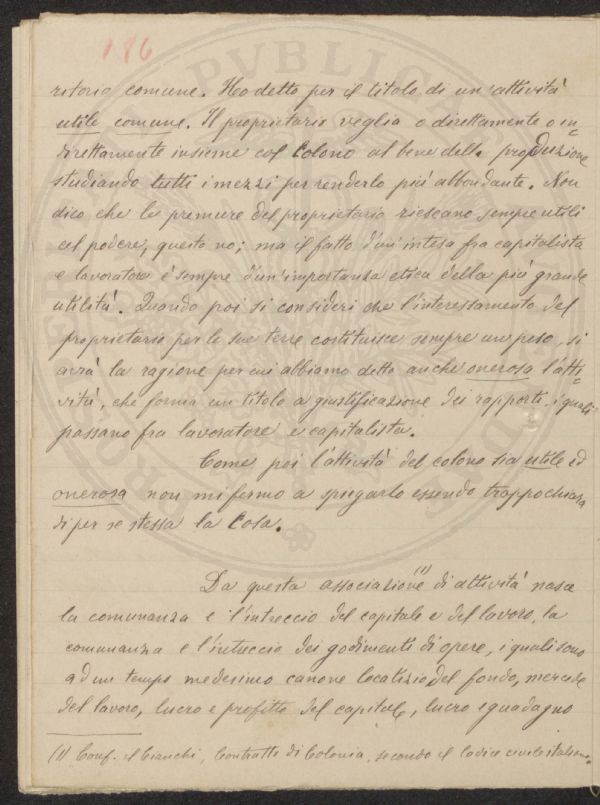 186
ritorio comune. Ho detto per il titolo di un'attività
utile comune. Il proprietario veglia o direttamente o in-
direttamente insieme col Colono al bene della produzione
studiando tutti i mezzi per renderla più abbondante. Non
dico che le premure del proprietario riescano sempre utili
al podere, questo no; ma il fatto d'un'intesa fra capitalista
e lavoratore è sempre d'un'importanza etica della più grande
utilità. Quando poi si consideri che l'interessamento del
proprietario per le sue terre costituisce sempre un peso, si
avrà la ragione per cui abbiamo detto anche onerosa l'atti-
vità, che forma un titolo a giustificazione dei rapporti, i quali
passano fra lavoratore e capitalista.
Come poi l'attività del colono sia utile ed
onerosa non mi fermo a spiegarlo essendo troppo chiara
di per se stessa la Cosa.
Da questa associazione (1) di attività nasce
la comunanza e l'intreccio del capitale e del lavoro, la
comunanza e l'intreccio dei godimenti di opere, i quali sono
ad un tempo medesimo canone locatizio del fondo, mercede
del lavoro, lucro e profitto del capitale, lucro e guadagno
(1) Conf. il Bianchi, Contratto di Colonia, secondo il codice civile italiano.
PVBLICA